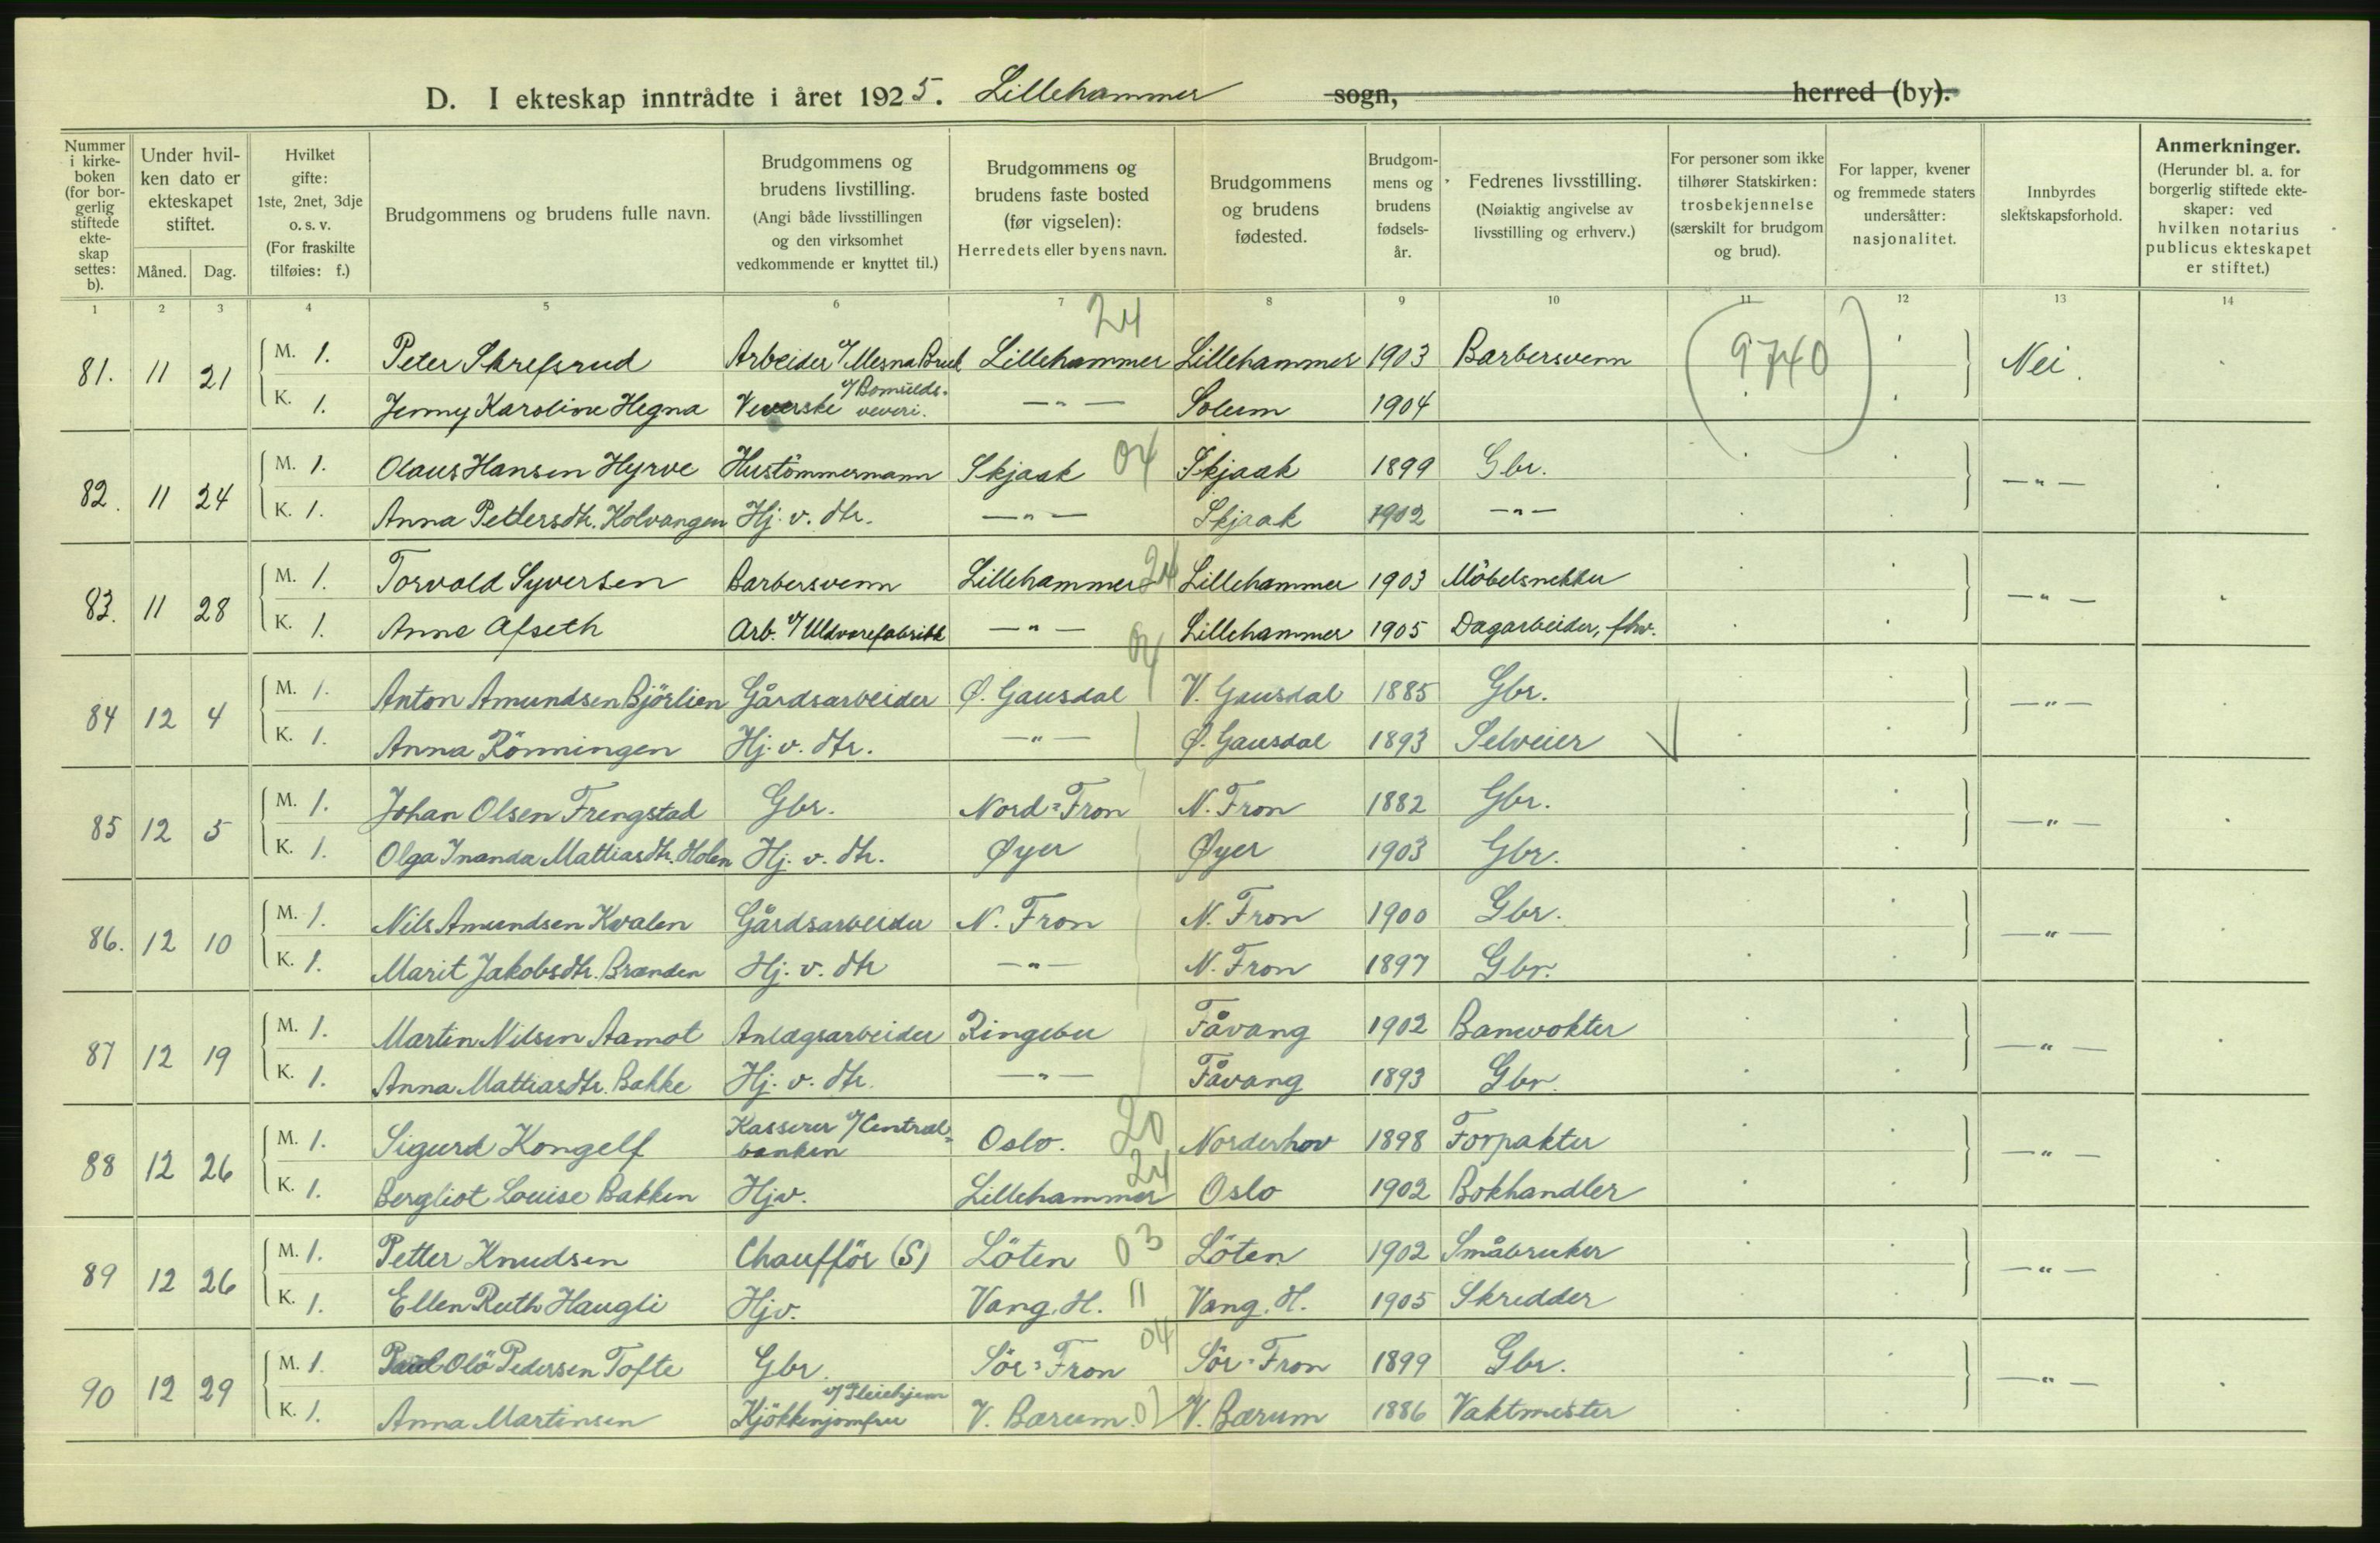 D. I ekteskap inntrådte i året 1925. Lillehammer sogn, herred (by).
Nummer i kirke- boken (for bor- gerlig stiftede ekte- skap settes: b).
Under hvil- ken dato er ekteskapet stiftet.
Måned. Dag.
Hvilket gifte: 1ste, 2net, 3dje o. s. v. (For fraskilte tilføies: f.)
Brudgommens og brudens fulle navn.
Brudgommens og brudens livstilling. (Angi både livsstillingen og den virksomhet vedkommende er knyttet til.)
Brudgommens og brudens faste bosted (før vigselen): Herredets eller byens navn.
Brudgommens og brudens fødested.
Brudgom- mens og brudens fødsels- år.
Fedrenes livsstilling. (Nøiaktig angivelse av livsstilling og erhverv.)
For personer som ikke tilhører Statskirken: trosbekjennelse (særskilt for brudgom og brud).
For lapper, kvener og fremmede staters undersåtter: nasjonalitet.
Innbyrdes slektskapsforhold.
Anmerkninger. (Herunder bl. a. for borgerlig stiftede ekte- skaper: ved hvilken notarius publicus ekteskapet er stiftet.)
1 2 3 4 5 6 7 8 9 10 11 12 13 14
24
81. 11 21 M. 1. Peter Skrefsrud Arbeider v/Mesna Bruk Lillehammer Lillehammer 1903 Barbersvenn (9740) Nei.
K. 1. Jenny Karoline Hegna Veverske v/Bomulds- veveri. —"— Solum 1904
82. 11 24 M. 1. Olaus Hansen Hyrve Hustömmermann Skjaak 04 Skjaak 1899 Gbr. —"—
K. 1. Anna Pettersdtr. Kolvangen Hj. v. dtr. —"— Skjaak 1902 —"—
83. 11 28 M. 1. Torvald Syversen Barbersvenn Lillehammer 24 Lillehammer 1903 Möbelsnekker —"—
K. 1. Anna Afseth Arb. v/Uldvarefabrikk —"— Lillehammer 1905 Dagarbeider, fhv.
84 12 4 M. 1. Anton Amundsen Björlien Gårdsarbeider Ø. Gausdal 04 V. Gausdal 1885 Gbr. —"—
K. 1. Anna Rönningen Hj. v. dtr. —"— Ø. Gausdal 1893 Selveier
85 12 5 M. 1. Johan Olsen Frengstad Gbr. Nord=Fron N. Fron 1882 Gbr. —"—
K. 1. Olga Inanda Mattiasdtr. Holen Hj. v. dtr. Øyer Øyer 1903 Gbr.
86. 12 10 M. 1. Nils Amundsen Kvalen Gårdsarbeider N. Fron N. Fron 1900 Gbr. —"—
K. 1. Marit Jakobsdtr. Brænden Hj. v. dtr —"— N. Fron 1897 Gbr.
87 12 19 M. 1. Martin Nilsen Aamot Anlægsarbeider Ringebu Fåvang 1902 Banevokter —"—
K. 1. Anna Mattiasdtr. Bakke Hj. v. dtr. —"— Fåvang 1893 Gbr.
88 12 26 M. 1. Sigurd Kongelf Kasserer v/Central= banken Oslo. 20 Norderhov 1898 Forpakter —"—
K. 1. Bergliot Louise Bakken Hjv. Lillehammer 24 Oslo 1902 Bokhandler
89 12 26 M. 1. Petter Knudsen Chaufför (S) Löten 03 Löten 1902 Småbruker —"—
K. 1. Ellen Ruth Haugli Hjv. Vang, H. 11 Vang, H. 1905 Skredder
90 12 29 M. 1. Paul Olö Pedersen Tofte Gbr. Sör=Fron 04 Sör=Fron 1899 Gbr. —"—
K. 1. Anna Martinsen Kjökkenjomfru v/Pleiehjem V. Bærum. V. Bærum 1886 Vaktmester